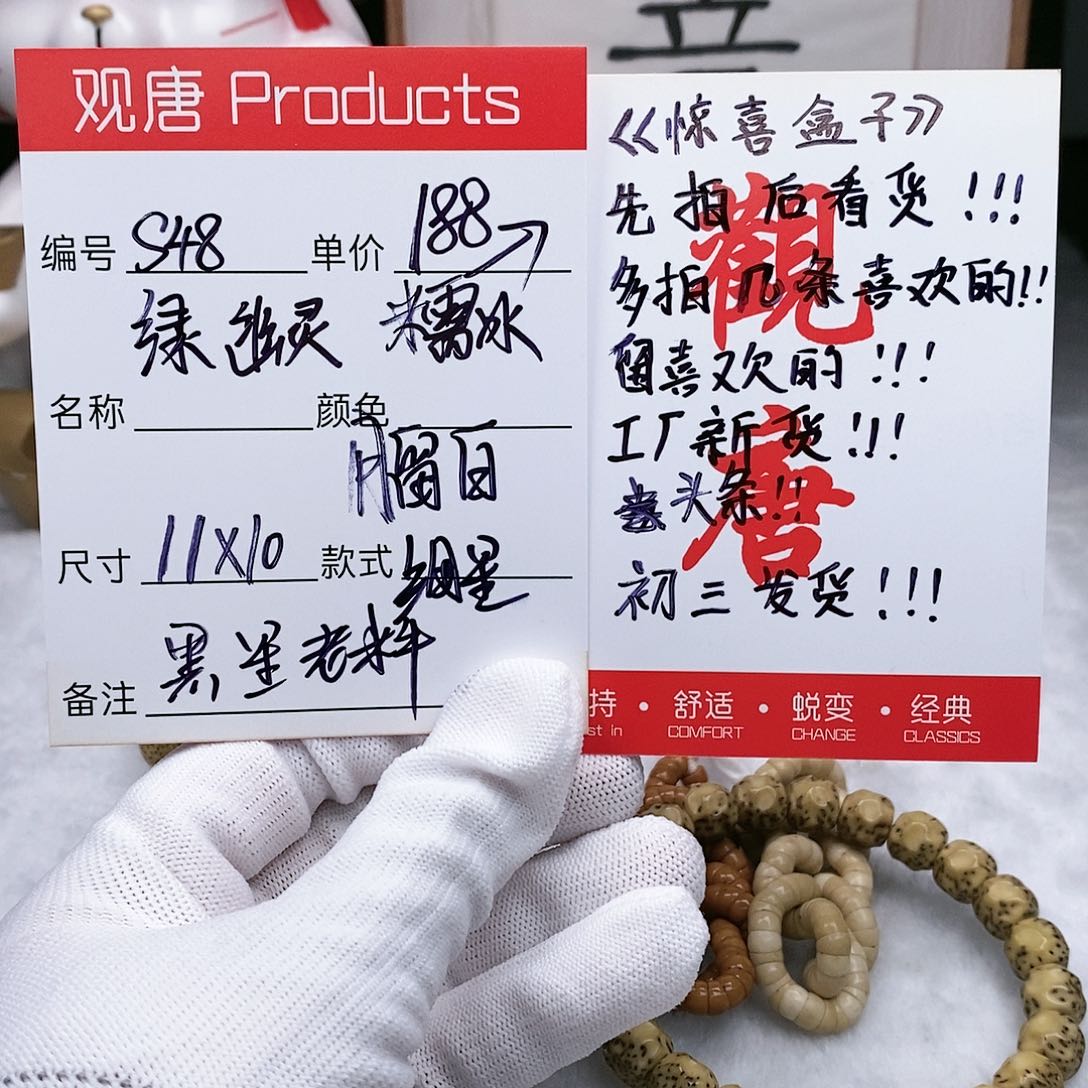 观唐 Products
编号 S48 单价 188
绿幽灵 糯冰
名称 颜色
留白
尺寸 11X10 款式 细星
黑星老料
备注
《惊喜盒子》
先拍后看货!!!
多拍几条喜欢的!!
留喜欢的!!!
工厂新货!!!
头条!!
初三发货!!!
觀唐
持 · 舒适 · 蜕变 · 经典
st in COMFORT CHANGE CLASSICS